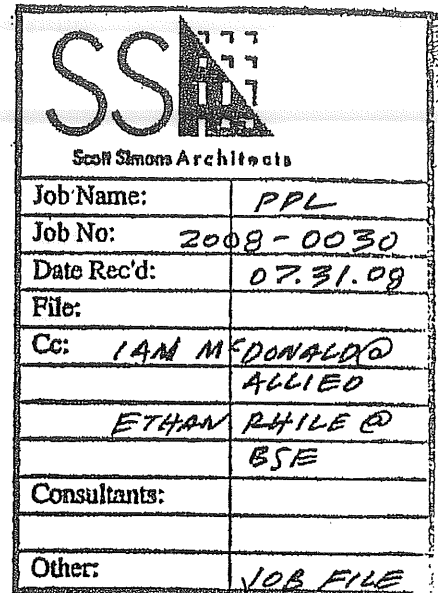 SSA
Scott Simons Architects
Job Name: PPL
Job No: 2008-0030
Date Rec'd: 07.31.08
File:
Cc: IAN McDONALD@
ALLIED
ETHAN RHILE @
BSE
Consultants:
Other: JOB FILE